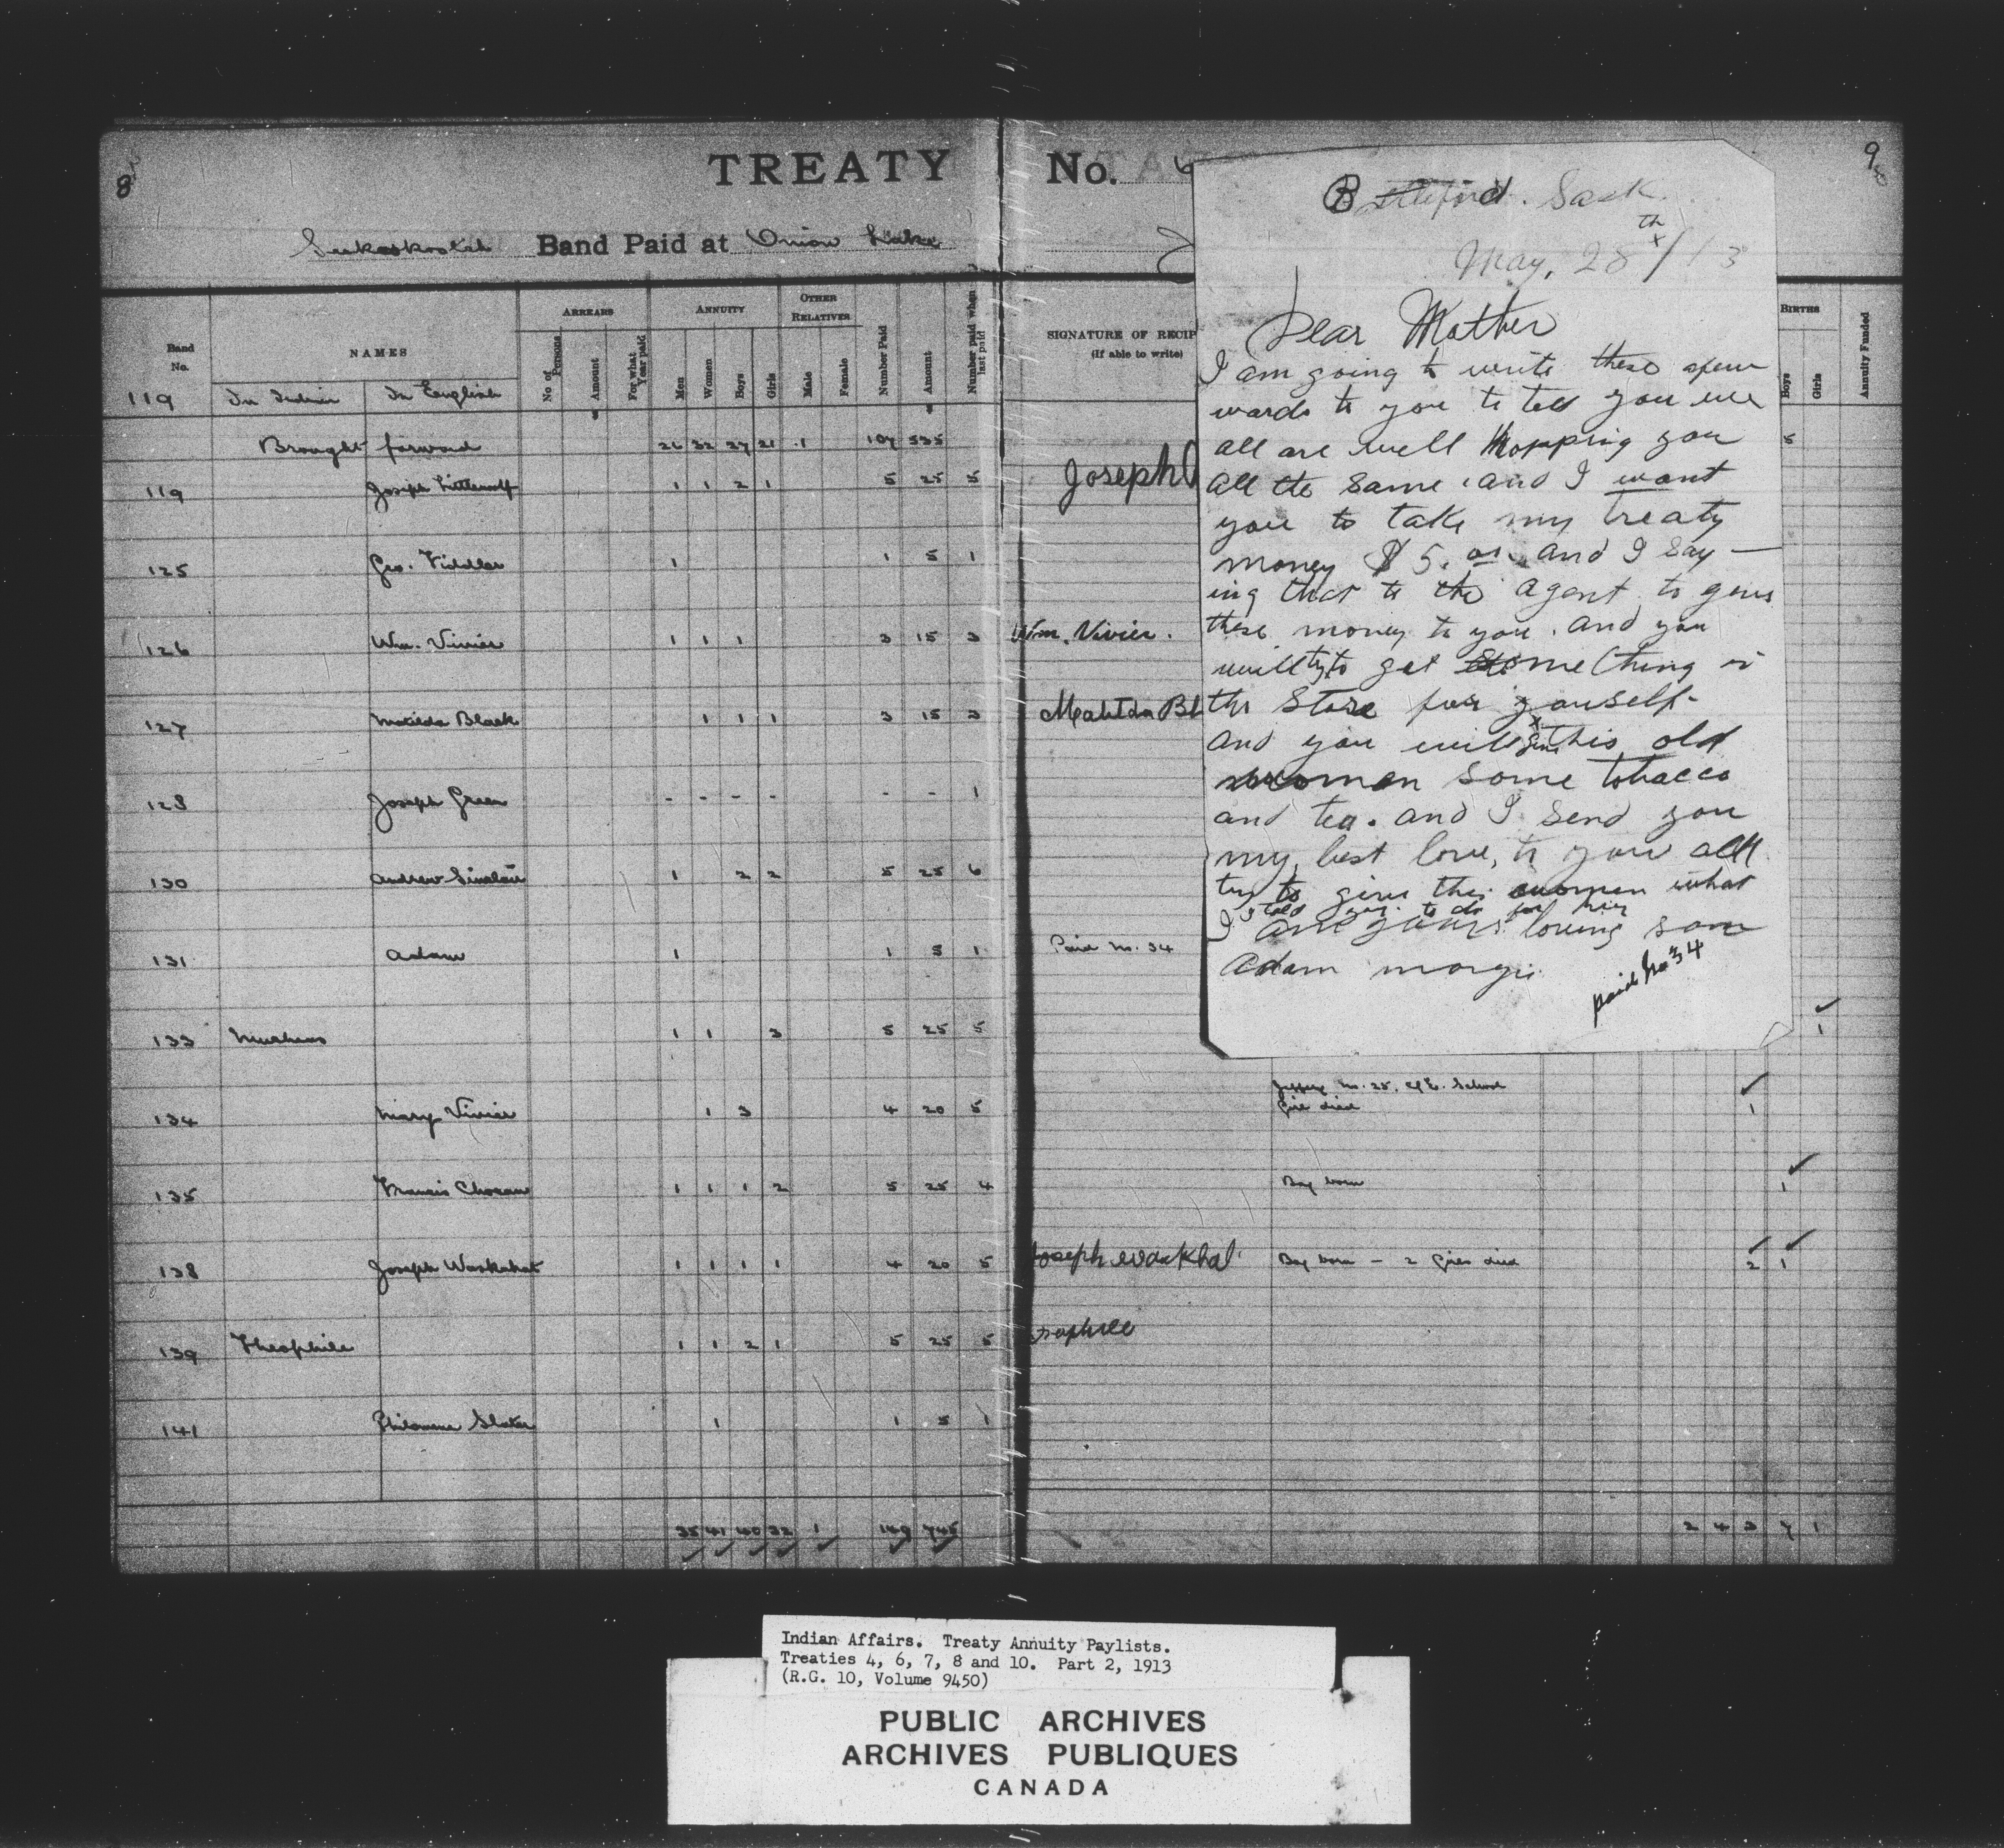 8
TREATY No. 6
9
Seekaskootch Band Paid at Onion Lake
Band No.
NAMES
ARREARS
ANNUITY
OTHER RELATIVES
No of Persons
Amount
For what Year paid
Men
Women
Boys
Girls
Male
Female
Number Paid
Amount
Number paid when last paid
SIGNATURE OF RECIP
(If able to write)
BIRTHS
Boys
Girls
Annuity Funded
119 In Indian In English
Brought forward 26 32 27 21 1 107 535 5
119 Joseph Littlewolf 1 1 2 1 5 25 5 Joseph
125 Geo. Fiddler 1 1 5 1
126 Wm. Vivier 1 1 1 3 15 3 Wm. Vivier.
127 Matilda Black 1 1 1 3 15 3 Matilda Bl
128 Joseph Green - - - - - - 1
130 Andrew Sinclair 1 2 2 5 25 6
131 Adam 1 1 5 1 Paid No. 34
133 1 1 3 5 25 5 1
134 Mary Vivier 1 3 4 20 5 No. 25, C.E. School
Girl died 1
135 Francis 1 1 1 2 5 25 4 Boy born 1
138 Joseph Waskahat 1 1 1 1 4 20 5 Joseph waskhat Boy born - 2 Girls died 2 1
139 Theophile 1 1 2 1 5 25 5
141 Philomene Slater 1 1 5 1
35 41 40 32 1 149 745 2 4 3 7 1
Battleford. Sask.
May, 28th/13
Dear Mother
I am going to write these few
wards to you to tell you we
all are well hopping you
all the same. and I want
you to take my treaty
money $5.00. and I say-
ing that to the agent to give
these money to you. and you
will try to get something in
the store for yourself-
and you will give this old
women some tobacco
and tea. and I send you
my best love, to you all
try to give this women what
I told you to do for her
I am yours loving son
Adam
paid No 34
Indian Affairs. Treaty Annuity Paylists.
Treaties 4, 6, 7, 8 and 10. Part 2, 1913
(R.G. 10, Volume 9450)
PUBLIC ARCHIVES
ARCHIVES PUBLIQUES
CANADA